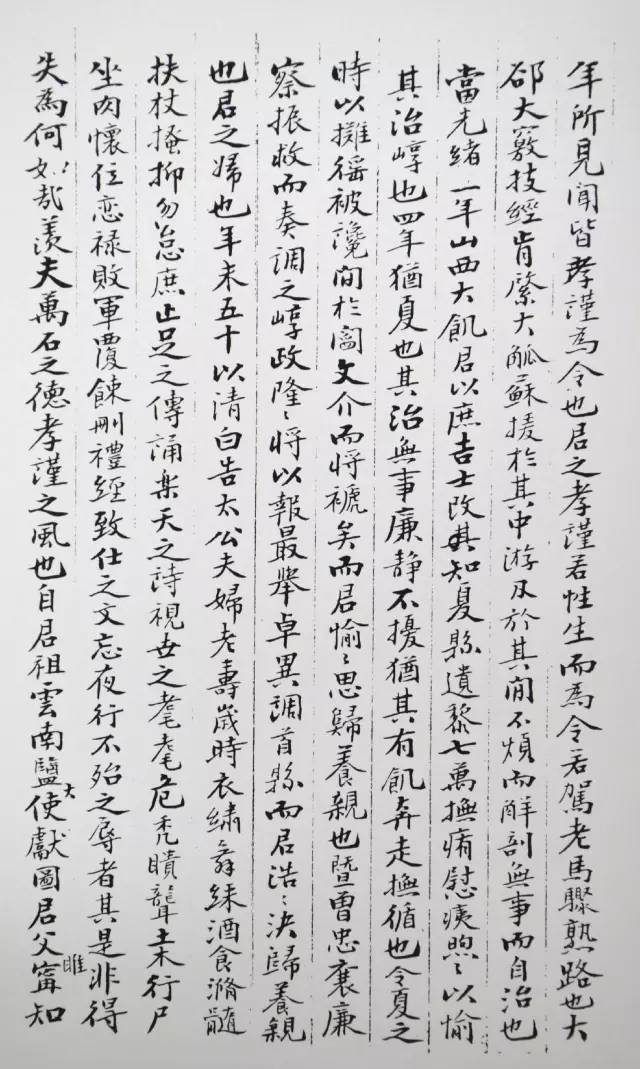 年所見聞皆孝謹為令也君之孝謹若性生而為令若駕老馬驟熟路也大
郤大竅技經肯綮大觚蘇援於其中游刃於其間不煩而解剖無事而自治也
當光緒一年山西大飢君以庶吉士改其知夏縣遺黎七萬撫痏慰痍煦〻以愉
其治崞也四年猶夏也其治無事廉静不擾猶其有飢奔走撫循也令夏之
時以攤徭被讒間於閻文介而将褫矣而君愉〻思歸養親也暨曾忠襄廉
察振救而奏調之崞政隆〻将以報最舉卓異調首縣而君浩〻決歸養親
也君之歸也年未五十以清白告太公夫婦老壽歲時衣繡舞綵酒食滫髓
扶杖搔抑勿怠庶止足之傳誦樂天之詩視世之耄耄危秃瞶聾土木行尸
坐肉懷位恋禄敗軍覆餗刪禮經致仕之文忘夜行不殆之辱者其是非得
失為何如哉羨夫萬石之德孝謹之風也自君祖雲南鹽大使獻圖君父寗知
睢